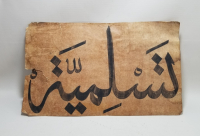 تَسْلِميَّة